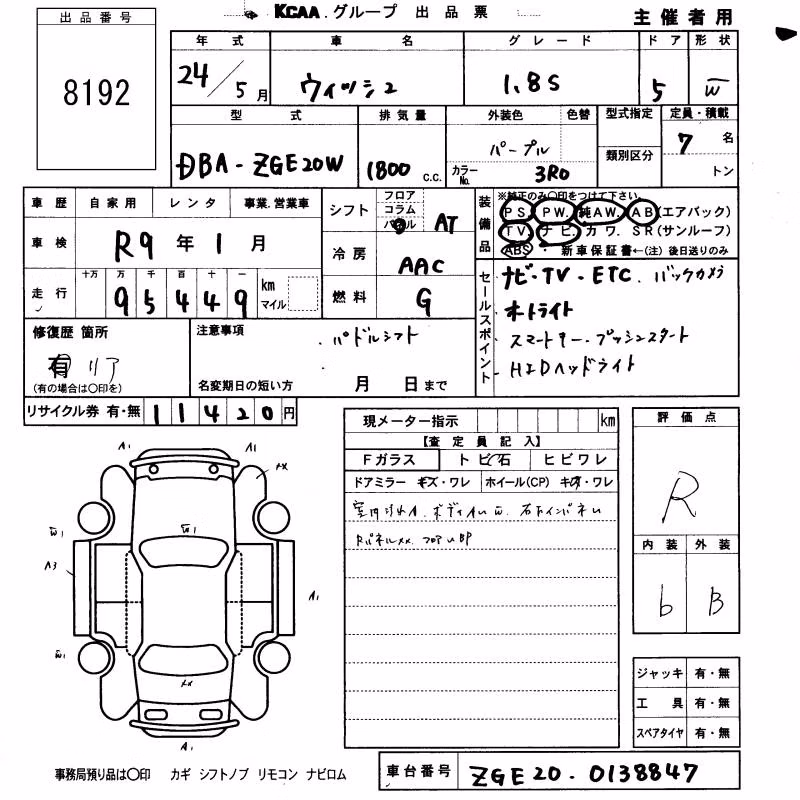 KCAA.グループ 出品票
主催者用
出品番号
8192
年式 車名 グレード ドア 形状
24/5月 ウィッシュ 1.8S 5 W
型式 排気量 外装色 色替 型式指定 定員・積載
DBA-ZGE20W 1800 c.c. パープル カラーNo. 3R0 類別区分 7名 トン
車歴 自家用 レンタ 事業.営業車
車検 R9年1月
走行 十万 万 千 百 十 一
95449 km マイル
シフト フロア コラム パネル AT
冷房 AAC
燃料 G
装備品 ※純正のみ〇印をつけて下さい
PS. PW. 純AW. AB(エアバック)
TV. ナビ. カワ. SR(サンルーフ)
ABS ・ 新車保証書←(注) 後日送りのみ
セールスポイント
ナビ・TV・ETC. バックカメラ
オートライト
スマートキー・プッシュスタート
HIDヘッドライト
修復歴 箇所
有 リア
(有の場合は〇印を)
注意事項
パドルシフト
名変期日の短い方 月 日まで
リサイクル券 有・無 11420円
現メーター指示 km
【査定員記入】
Fガラス トビ石 ヒビワレ
ドアミラー キズ・ワレ ホイール(CP) キズ・ワレ
Rパネルxx. フロアuBP
評価点
R
内装 外装
b B
ジャッキ 有・無
工具 有・無
スペアタイヤ 有・無
A1 A1
xx
W1 W1
A3 A1
W1 W1
xx
A1
事務局預り品は〇印 カギ シフトノブ リモコン ナビロム
車台番号 ZGE20-0138847